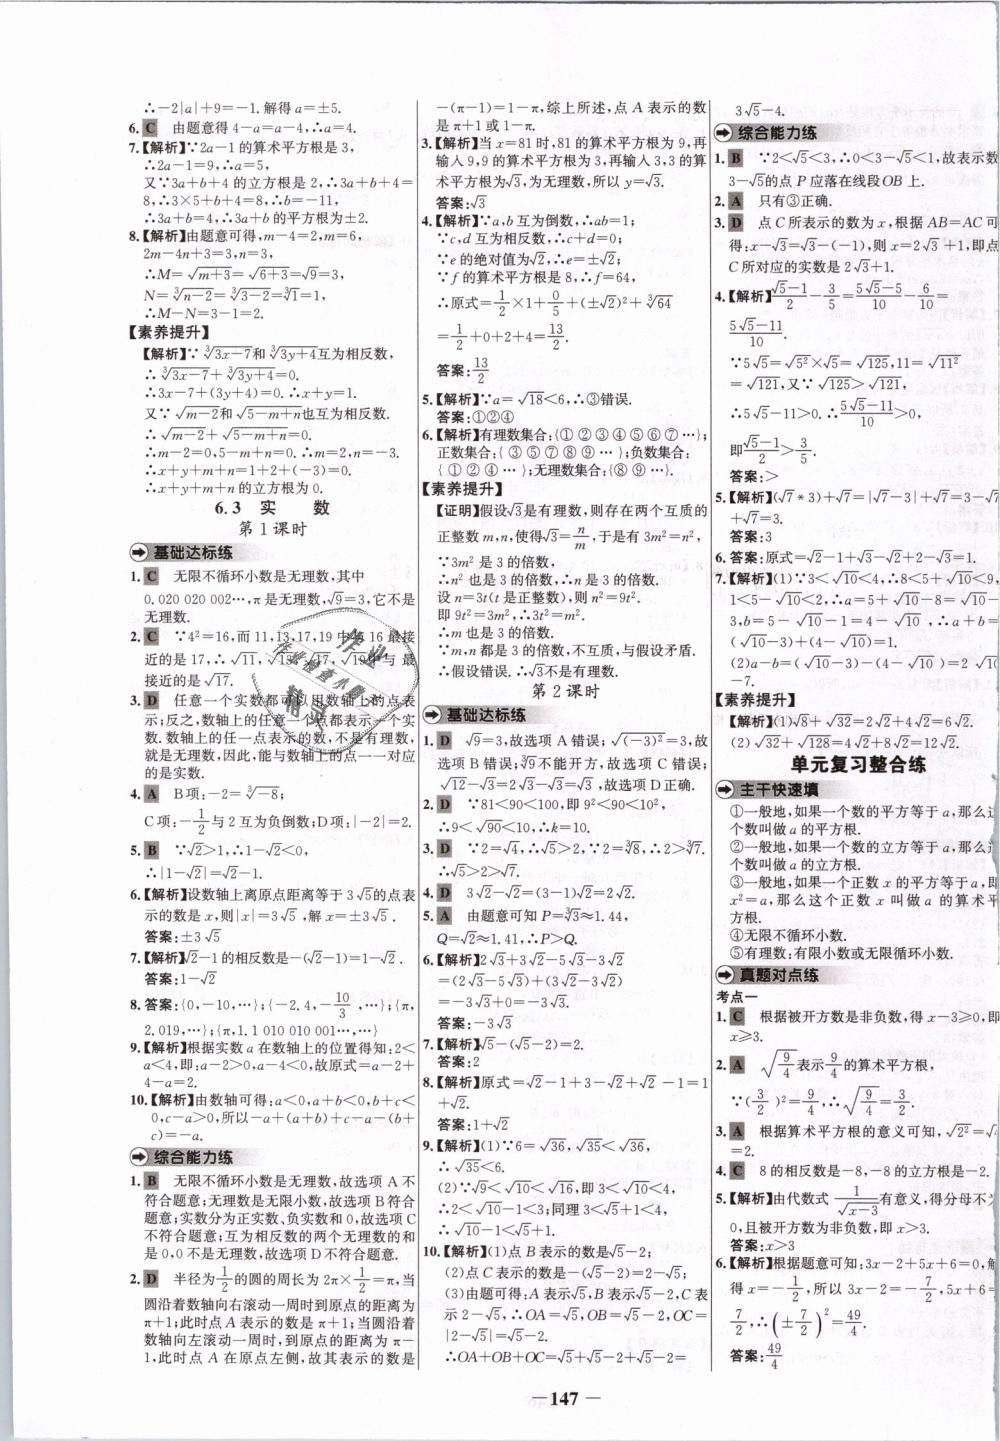 ∴-2|a|+9=-1. 解得 a=±5.
6. C 由题意得 4-a=a-4,∴a=4.
7.【解析】∵2a-1 的算术平方根是 3,
∴2a-1=9,∴a=5,
又∵3a+b+4 的立方根是 2,∴3a+b+4=
8,∴3×5+b+4=8,∴b=-11,
∴3a+b=4,∴3a+b 的平方根为±2.
8.【解析】由题意可得,m-4=2,m=6,
2m-4n+3=3,n=3,
∴M=√(m+3)=√(6+3)=√9=3,
N=∛(n-2)=∛(3-2)=∛1=1,
∴M-N=3-1=2.
【素养提升】
【解析】∵∛(3x-7)和∛(3y+4)互为相反数,
∴∛(3x-7)+∛(3y+4)=0.
∴3x-7+(3y+4)=0.∴x+y=1.
又∵√(m-2)和√(5-m+n)也互为相反数.
∴√(m-2)+√(5-m+n)=0.
∴m-2=0,5-m+n=0.∴m=2,n=-3.
∴x+y+m+n=1+2+(-3)=0.
∴x+y+m+n 的立方根为 0.
6.3 实 数
第 1 课时
基础达标练
1. C 无限不循环小数是无理数,其中
0.020 020 002…,π是无理数,√9=3,它不是
无理数.
2. C ∵4²=16,而 11,13,17,19 中与 16 最接
近的是 17,∴√11,√13,√17,√19中与 最
接近的是√17.
3. D 任意一个实数都可以用数轴上的点表
示;反之,数轴上的任意一个点都表示一个实
数.数轴上的任一点表示的数,不是有理数,
就是无理数,因此,能与数轴上的点一一对应
的是实数.
4. A B 项:-2=∛-8;
C 项:-1/2与 2 互为负倒数;D 项:|-2|=2.
5. B ∵√2>1,∴1-√2<0,
∴|1-√2|=√2-1.
6.【解析】设数轴上离原点距离等于 3√5的点表
示的数是 x,则|x|=3√5,解 x=±3√5.
答案:±3√5
7.【解析】√2-1 的相反数是-(√2-1)=1-√2.
答案:1-√2
8. 答案:{0,-10,…};{-2.4,-10/3,…};{π,
2,019,…};{π,1.1 010 010 001…,…}
9.【解析】根据实数 a 在数轴上的位置得知:2<
a<4,即:a-2>0,a-4<0,故原式=a-2+
4-a=2.
10.【解析】由数轴可得:a<0,a+b<0,b+c<
0,c-a>0,所以-a+(a+b)+c-a-(b+
c)=-a.
综合能力练
1. B 无限不循环小数是无理数,故选项 A 不
符合题意;无理数是无限小数,故选项 B 符合
题意;实数分为正实数、负实数和 0,故选项 C
不符合题意;互为相反数的两个无理数的和
是 0,0 不是无理数,故选项 D 不符合题意.
2. D 半径为1/2的圆的周长为 2π×1/2=π,当
圆沿着数轴向右滚动一周时到原点的距离为
π+1;此时点 A 表示的数是 π+1;当圆沿着
数轴向左滚动一周时,到原点的距离为 π-
1,此时点 A 在原点左侧,故其表示的数是
-(π-1)=1-π,综上所述,点 A 表示的数
是 π+1 或 1-π.
3.【解析】当 x=81 时,81 的算术平方根为 9,再
输入 9,9 的算术平方根为 3,再输入 3,3 的算
术平方根为√3,为无理数,所以 y=√3.
答案:√3
4.【解析】∵a,b 互为倒数,∴ab=1;
∵c,d 互为相反数,∴c+d=0;
∵e 的绝对值为√2,∴e=±√2;
∵f 的算术平方根是 8,∴f=64,
∴原式=1/2×1+0/5+(±√2)²+∛64
=1/2+0+2+4=13/2.
答案:13/2
5.【解析】∵a=√18<6,∴③错误.
答案:①②④
6.【解析】有理数集合:{① ② ③ ④ ⑤ ⑥ ⑦ …};
正数集合:{③ ⑤ ⑦ ⑧ ⑨ … };负数集合:
{ ① ② ④ … };无理数集合:{⑧ ⑨ …}.
【素养提升】
【证明】假设√3是有理数,则存在两个互质的
正整数 m,n,使得√3=n/m,于是有 3m²=n²,
∵3m²是 3 的倍数,
∴n²也是 3 的倍数,∴n 是 3 的倍数.
设 n=3t(t 是正整数),则 n²=9t².
即 9t²=3m²,∴3t²=m².
∴m 也是 3 的倍数.
∴m,n 都是 3 的倍数,不互质,与假设矛盾.
∴假设错误.∴√3不是有理数.
第 2 课时
基础达标练
1. D √9=3,故选项 A 错误;√(-3)²=3,故
选项 B 错误;∛9不能开方,故选项 C 错误;
√12-√3=2√3-√3=√3,故选项 D 正确.
2. D ∵81<90<100,即 9²<90<10²,
∴9<√90<10,∴k=10.
3. D ∵2=√4,∴√5>2,∵2=∛8,∴2>∛7.
∴√5>2>∛7.
4. D 3√2-√2=(3-1)√2=2√2.
5. A 由题意可知 P=∛3≈1.44,
Q=√2≈1.41,∴P>Q.
6.【解析】2√3+3√2-5√3-3√2
=(2√3-5√3)+(3√2-3√2)
=-3√3+0=-3√3.
答案:-3√3
7.【解析】√5-(√5-2)=2.
答案:2
8.【解析】原式=√2-1+3-√2+√2-1=1
+√2.
答案:1+√2
9.【解析】(1)∵6=√36,√35<√36,
∴√35<6.
(2)∵√9<√10<√16,即 3<√10<4,
∴2<√10-1<3;同理 3<√5+1<4,
∴√10-1<√5+1.
10.【解析】(1)点 B 表示的数是√5-2;
(2)点 C 表示的数是-(√5-2)=2-√5;
(3)由题可得:A 表示√5,B 表示√5-2,C 表
示 2-√5,∴OA=√5,OB=√5-2,OC=
|2-√5|=√5-2.
∴OA+OB+OC=√5+√5-2+√5-2=
3√5-4.
综合能力练
1. B ∵2<√5<3,∴0<3-√5<1,故表示数
3-√5的点 P 应落在线段 OB 上.
2. A 只有③正确.
3. D 点 C 所表示的数为 x,根据 AB=AC 可
得:x-√3=√3-(-1),则 x=2√3+1,即点
C 所对应的实数是 2√3+1.
4.【解析】(√5-1)/2-3/5=(5√5-5)/10-6/10=
(5√5-11)/10.
∵5√5=√(5²×5)=√125,11=√11²
=√121,又∵√125>√121,
∴5√5-11>0.∴(5√5-11)/10>0,
即(√5-1)/2>3/5.
答案:>
5.【解析】(√7*3)+√7=|√7-3|+√7=3-√7
+√7=3.
答案:3
6. 答案:原式=√2-1+√3-√2+2-√3=1.
7.【解析】(1)∵3<√10<4,∴8<5+√10<9,
1<5-√10<2,∴a=5+√10-8=√10-
3,b=5-√10-1=4-√10,∴a+b=(
√10-3)+(4-√10)=1.
(2)a-b=(√10-3)-(4-√10)=2√10
-7.
【素养提升】
【解析】(1)√8+√32=2√2+4√2=6√2.
(2)√32+√128=4√2+8√2=12√2.
单元复习整合练
主干快速填
①一般地,如果一个数的平方等于 a,那么这
个数叫做 a 的平方根.
②一般地,如果一个数的立方等于 a,那么这
个数叫做 a 的立方根.
③一般地,如果一个正数 x 的平方等于 a,即
x²=a,那么这个正数 x 叫做 a 的算术平
方根.
④无限不循环小数.
⑤有理数:有限小数或无限循环小数.
真题对点练
考点一
1. C 根据被开方数是非负数,得 x-3≥0,即
x≥3.
2. A √(9/4)表示9/4的算术平方根,
∵(3/2)²=9/4,∴√(9/4)=3/2.
3. A 根据算术平方根的意义可知,√2²=√4
=2.
4. C 8 的相反数是-8,-8 的立方根是-2.
5.【解析】由代数式1/√(x-3)有意义,得分母不为
0,且被开方数为非负数,即 x-3>0.
答案:x>3
6.【解析】根据题意可知:3x-2+5x+6=0,解
得 x=-1/2,所以 3x-2=-7/2,5x+6=
7/2,∴(±7/2)²=49/4.
答案:49/4
作业
作业检查小助
精灵
— 147 —